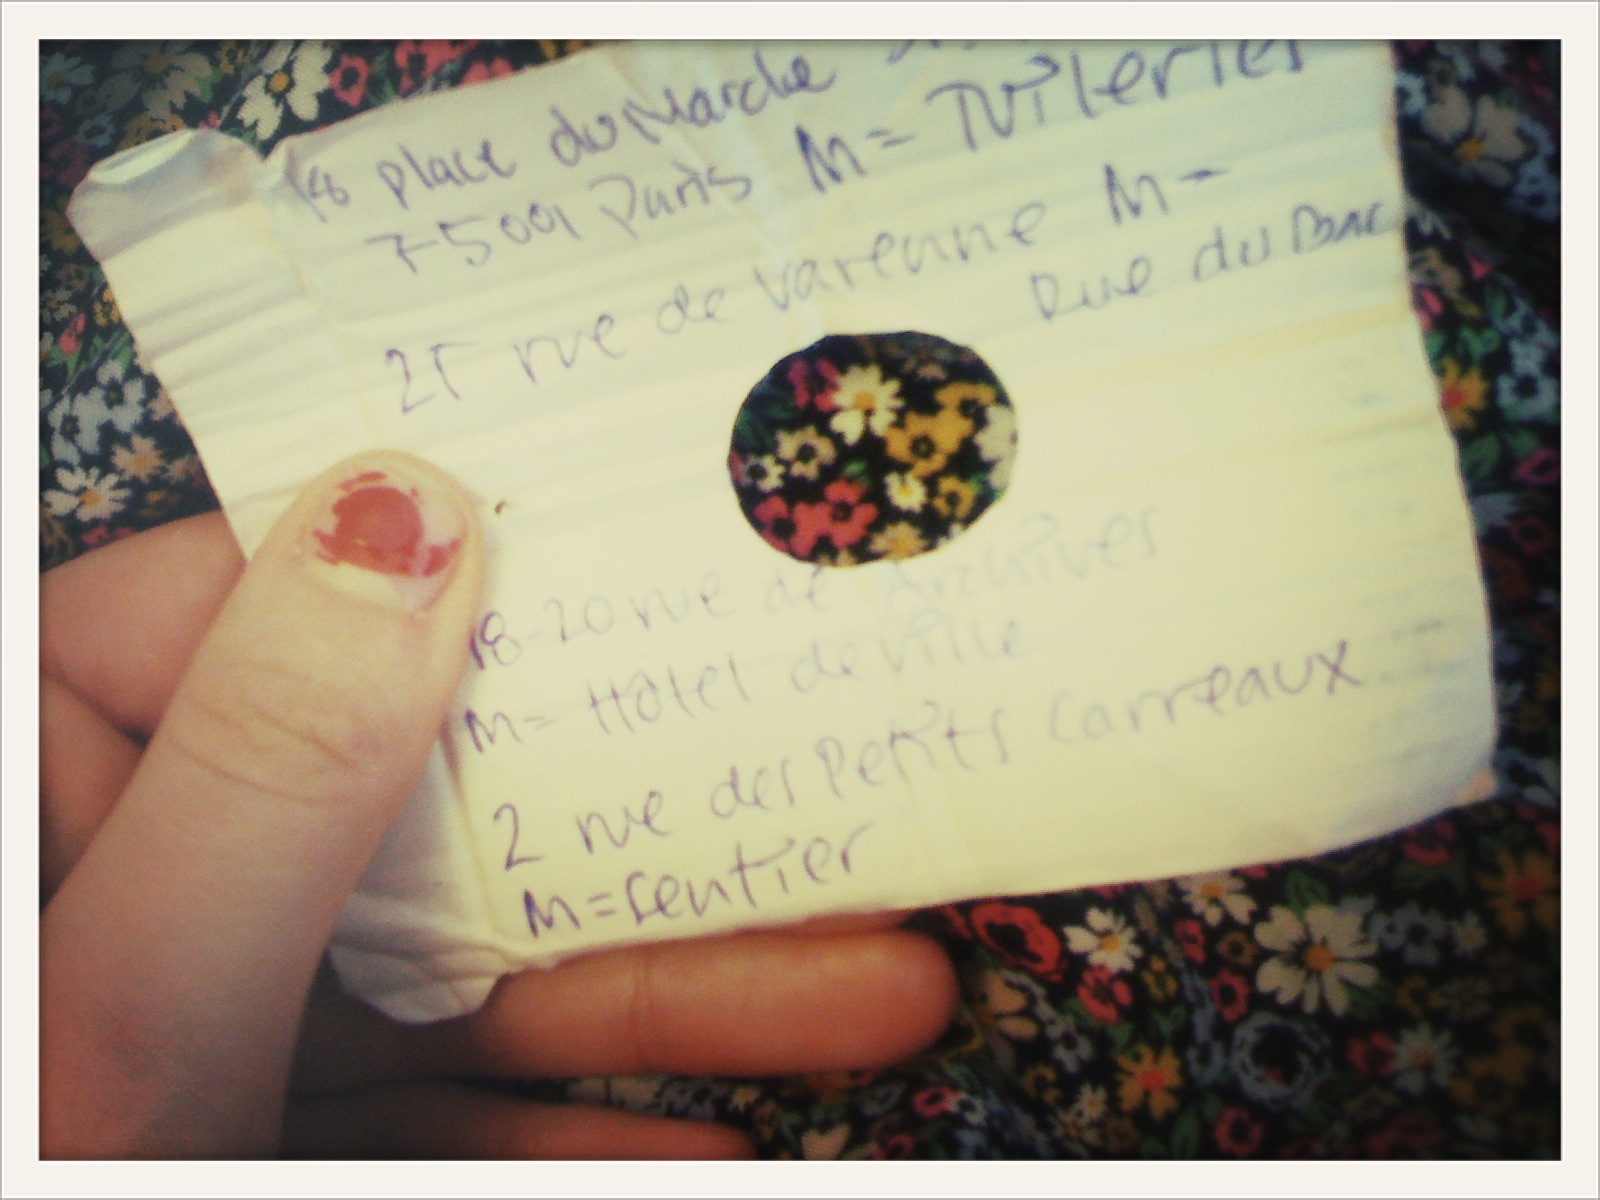 18 place du Marche
75001 Paris M= Tuileries
25 rue de varenne M-
Rue du Bac
18-20 rue de Archives
M= Hôtel de ville
2 rue des Petits Carreaux
M=Sentier